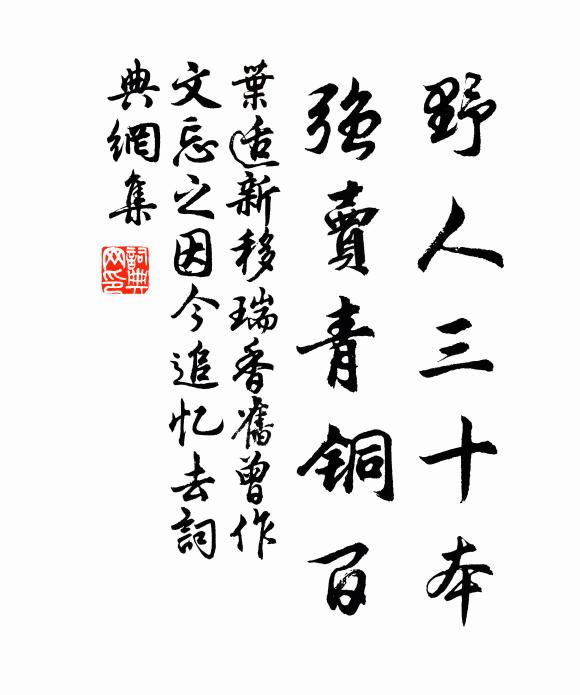 野人三十本
強賣青铜百
葉適新移瑞香舊曾作
文忘之因今追忆去詞
典網集
詞典网印